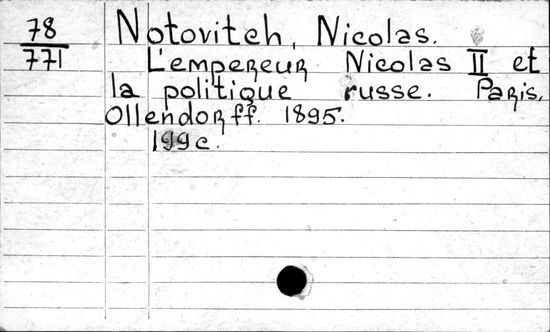 78
771
Notovitch, Nicolas.
L'empereur Nicolas II et
la politique russe. Paris,
Ollendorff. 1895.
199c.